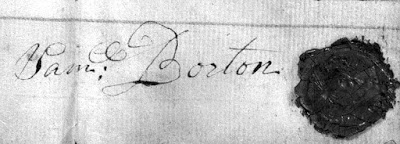 Sam.ˡ: Borton